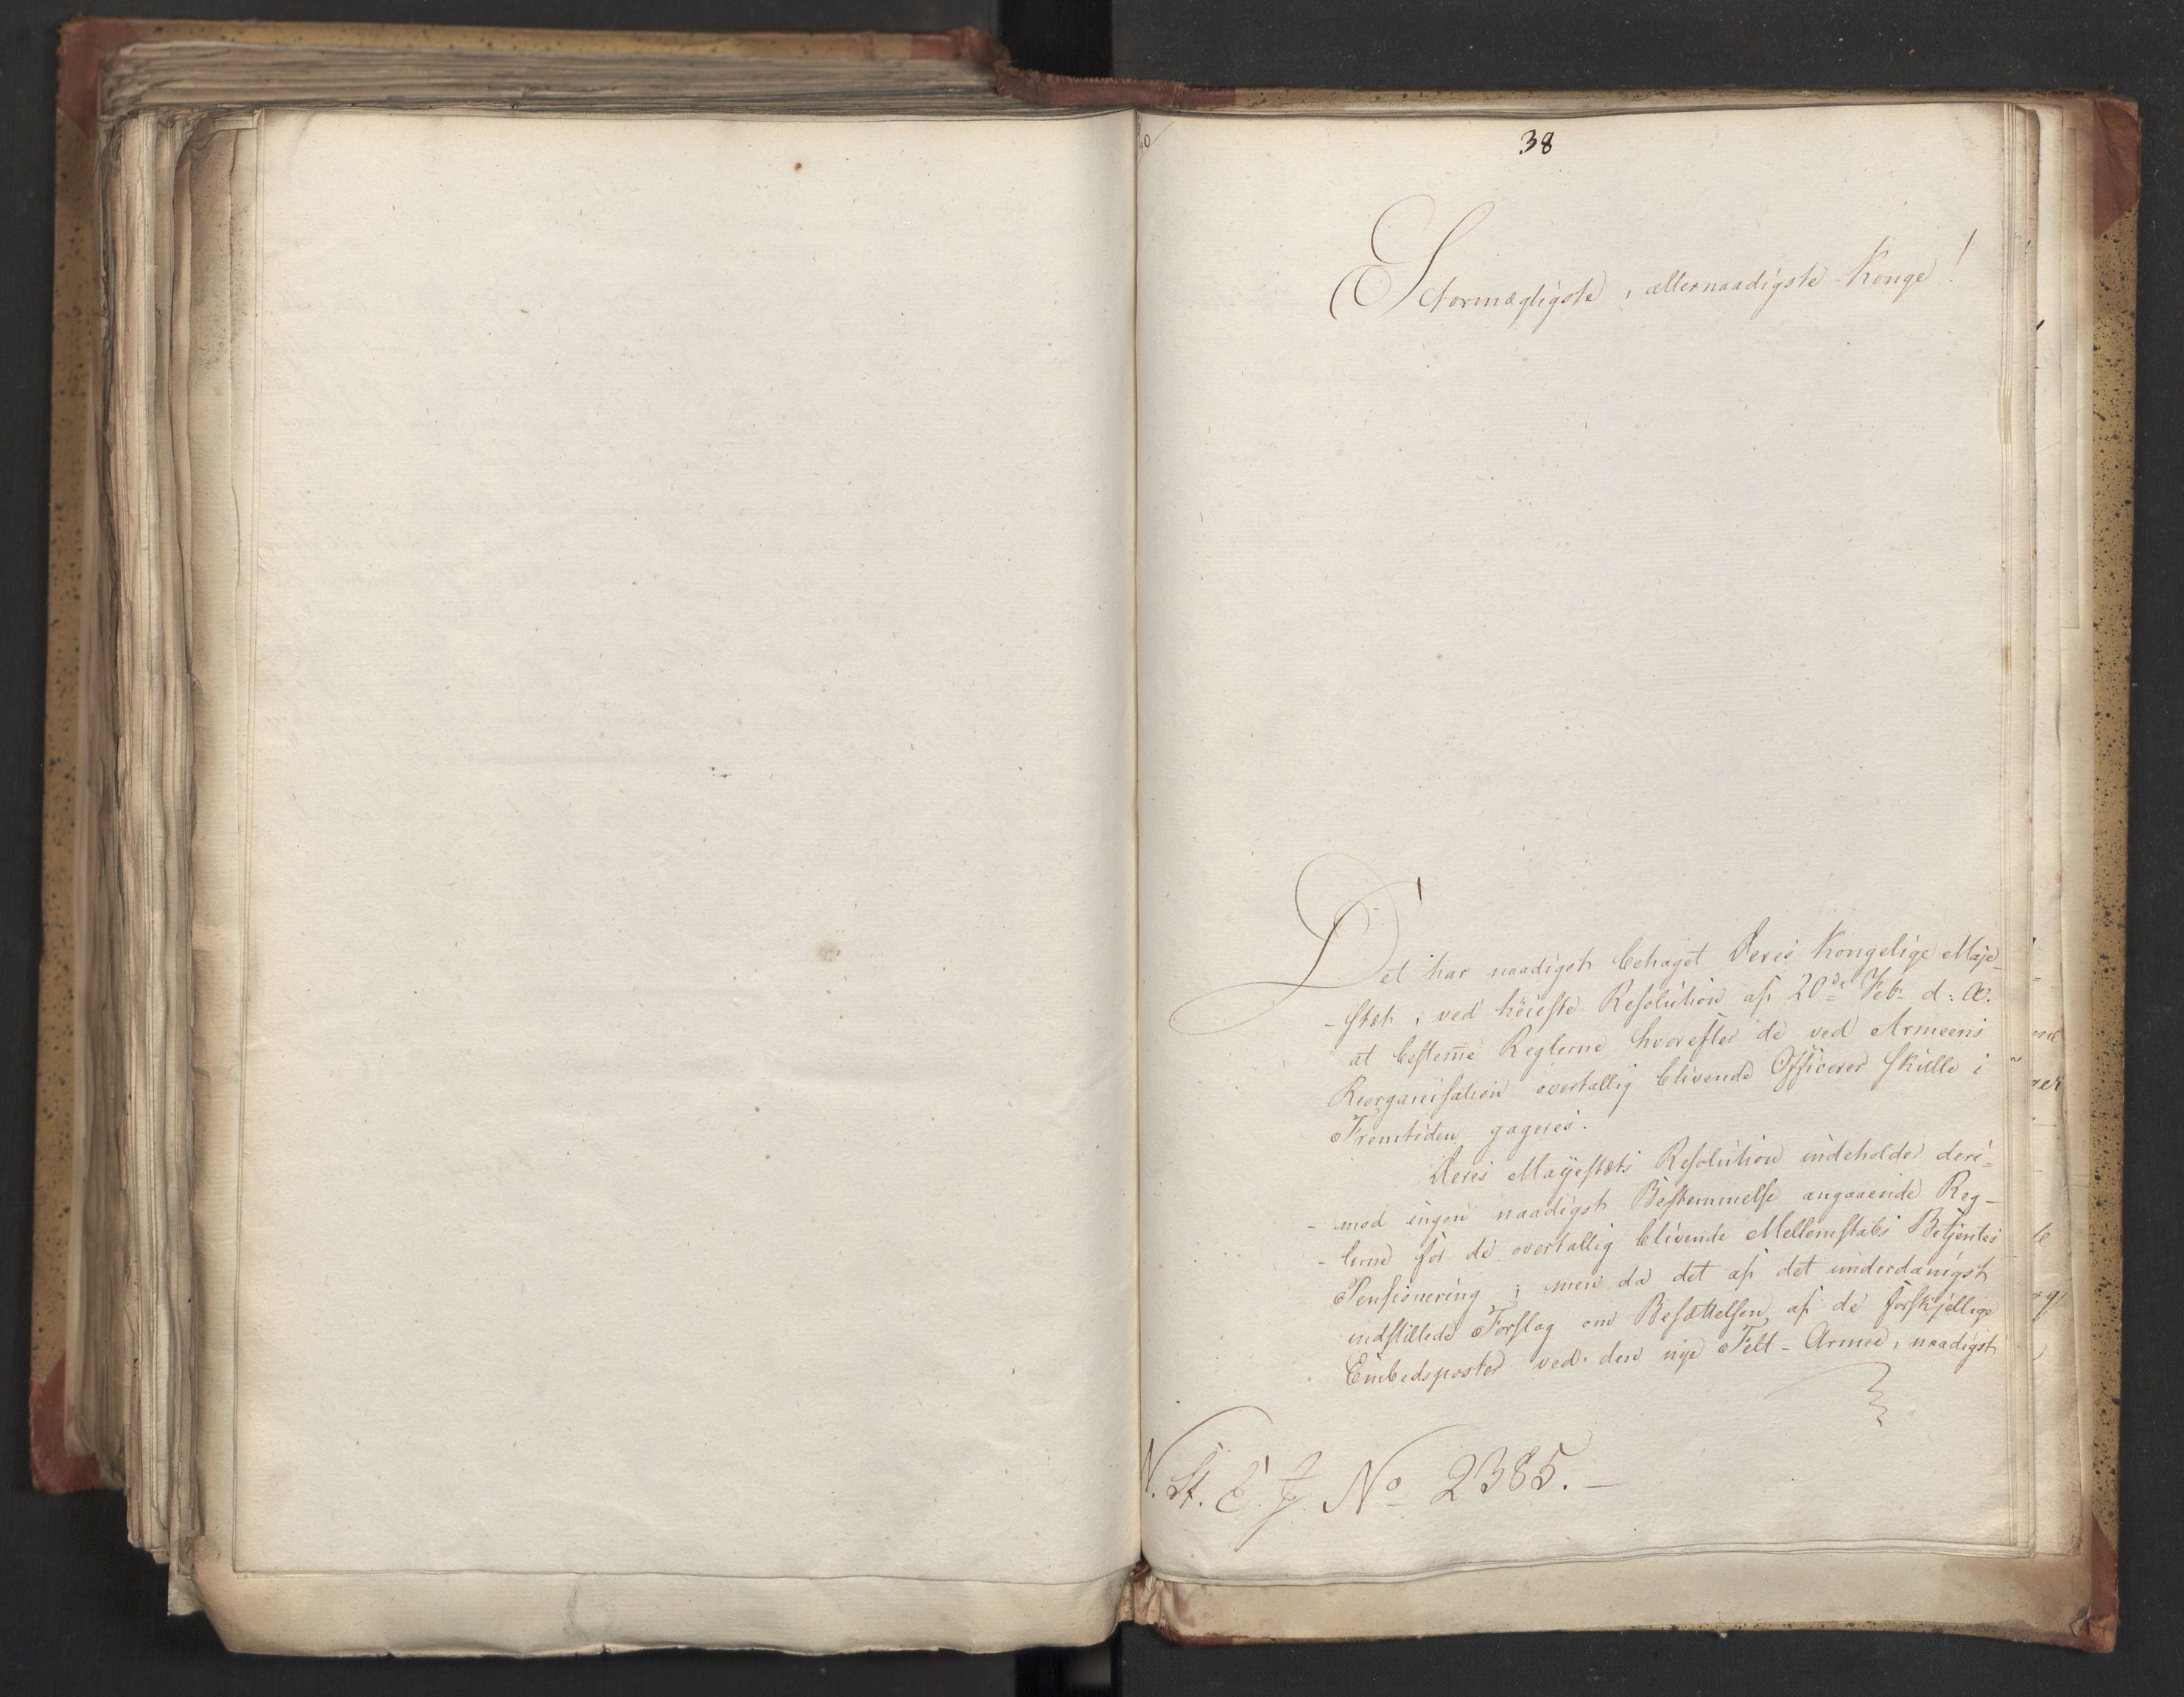 38
Stormægtigste, allernaadigste Konge!
Det har naadigst behaget Deres Kongelige Maje-
-stæt, ved höieste Resolution af 20de Febr d: A.
at bestem̅e Reglerne hvorefter de ved Armeens
Reorganisation overtallig blivende Officerer skulle i
Fremtiden gageres.
Deres Majestæts Resolution indeholder deri-
-mod ingen naadigst Bestemmelse angaaende Reg-
-lerne for de overtallig blivende Mellemstabs Betjentes
Pensionering; men da det af det underdanigst
indstillede Forslag om Besættelsen af de forskjellige
Embedsposter ved den nye Felt-Armee, naadigst
N. St. E. J. No 2385.-